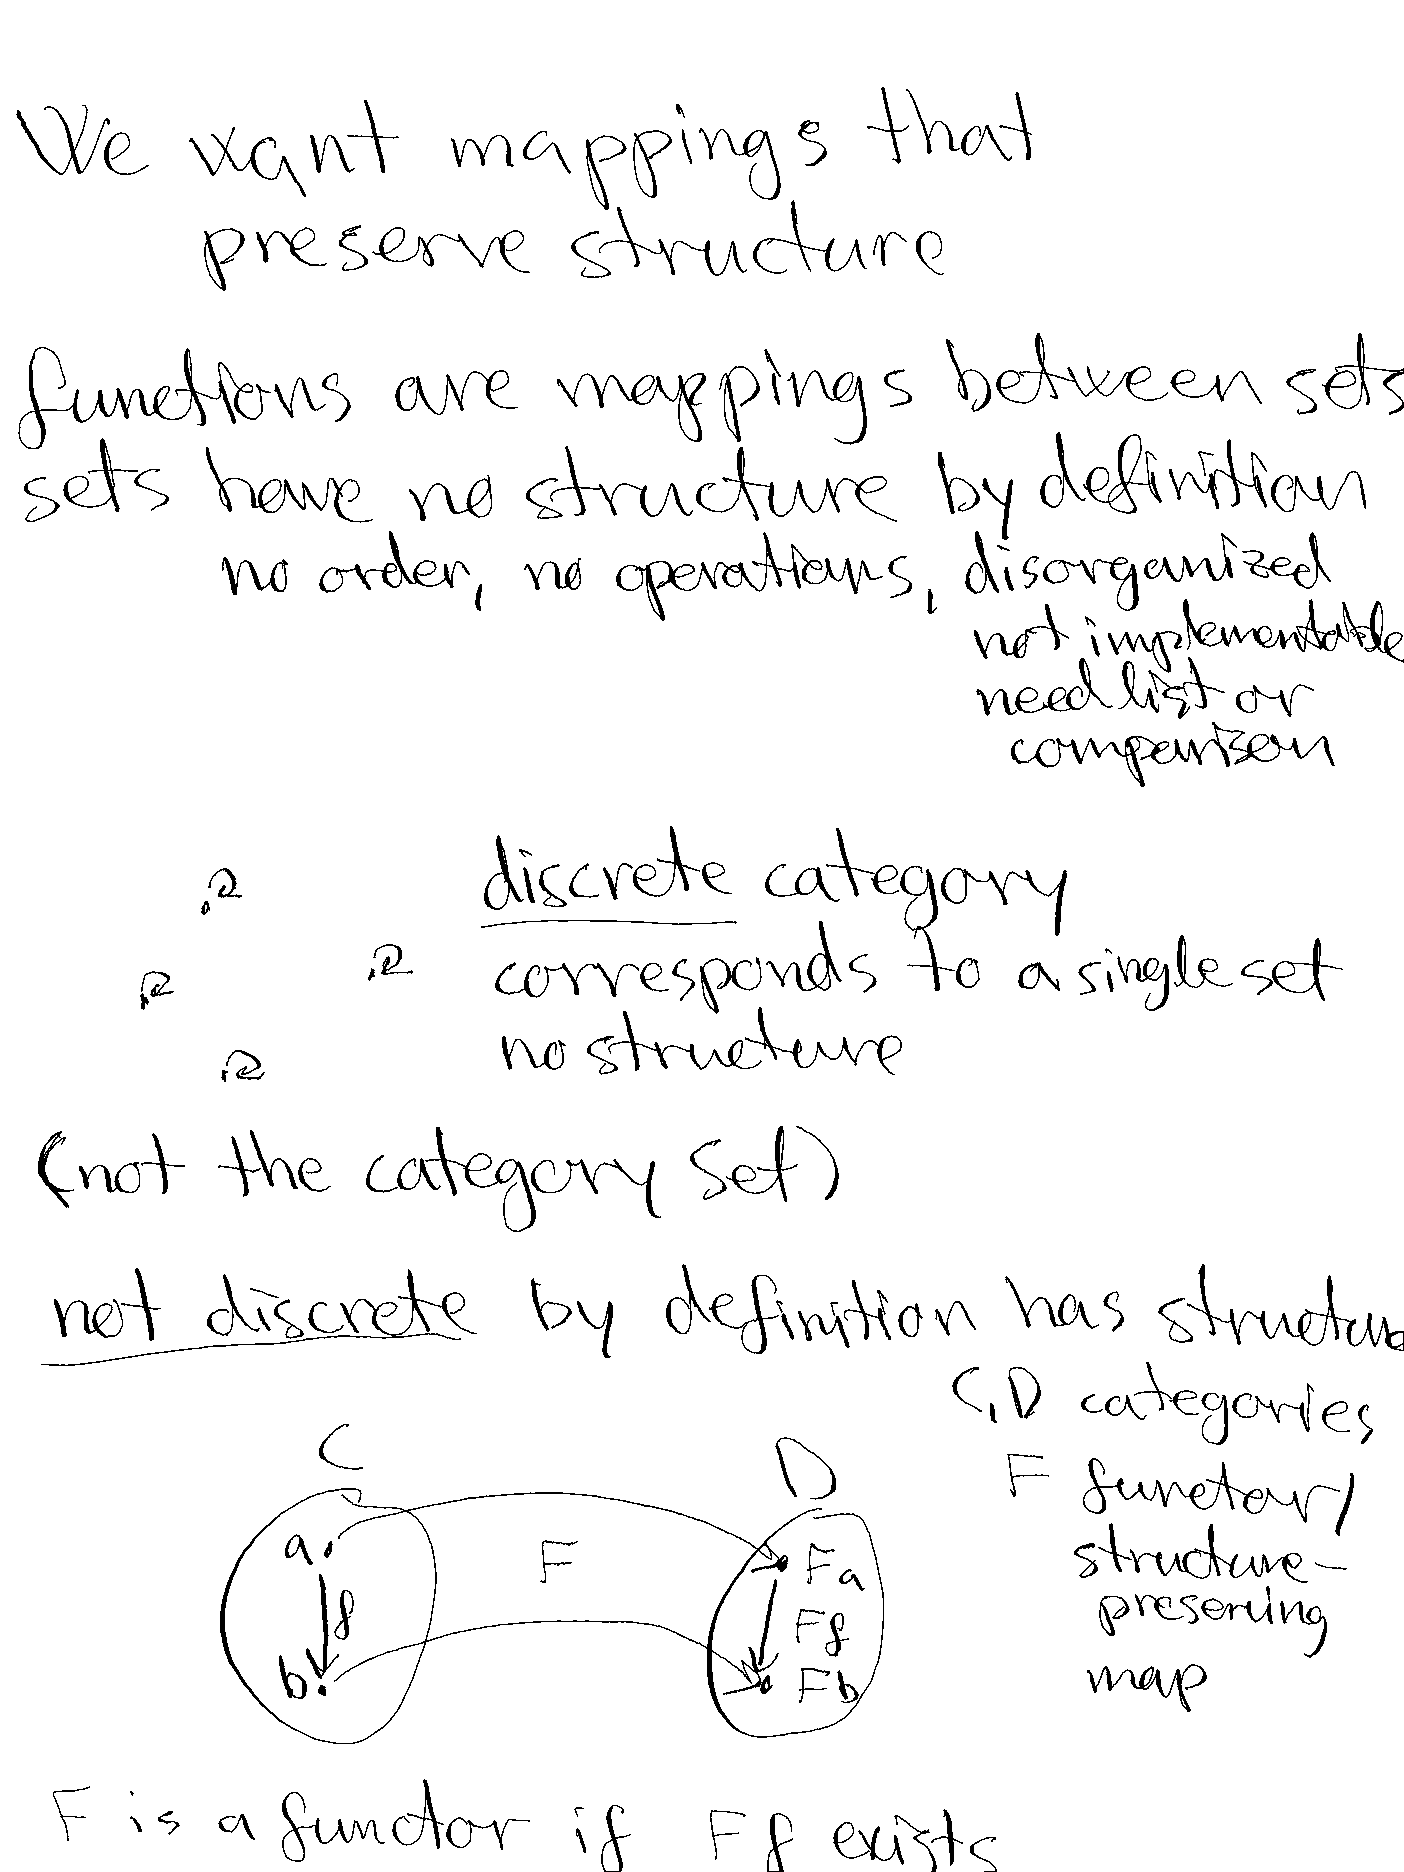 We want mappings that
preserve structure
functions are mappings between sets
sets have no structure by definition
no order, no operations, disorganized
not implementable
need list or
comparison
discrete category
corresponds to a single set
no structure
(not the category Set)
not discrete by definition has structure
C, D categories
F functor/
structure-
preserving
map
C
D
a
F
Fa
f
Ff
b
Fb
F is a functor if Ff exists